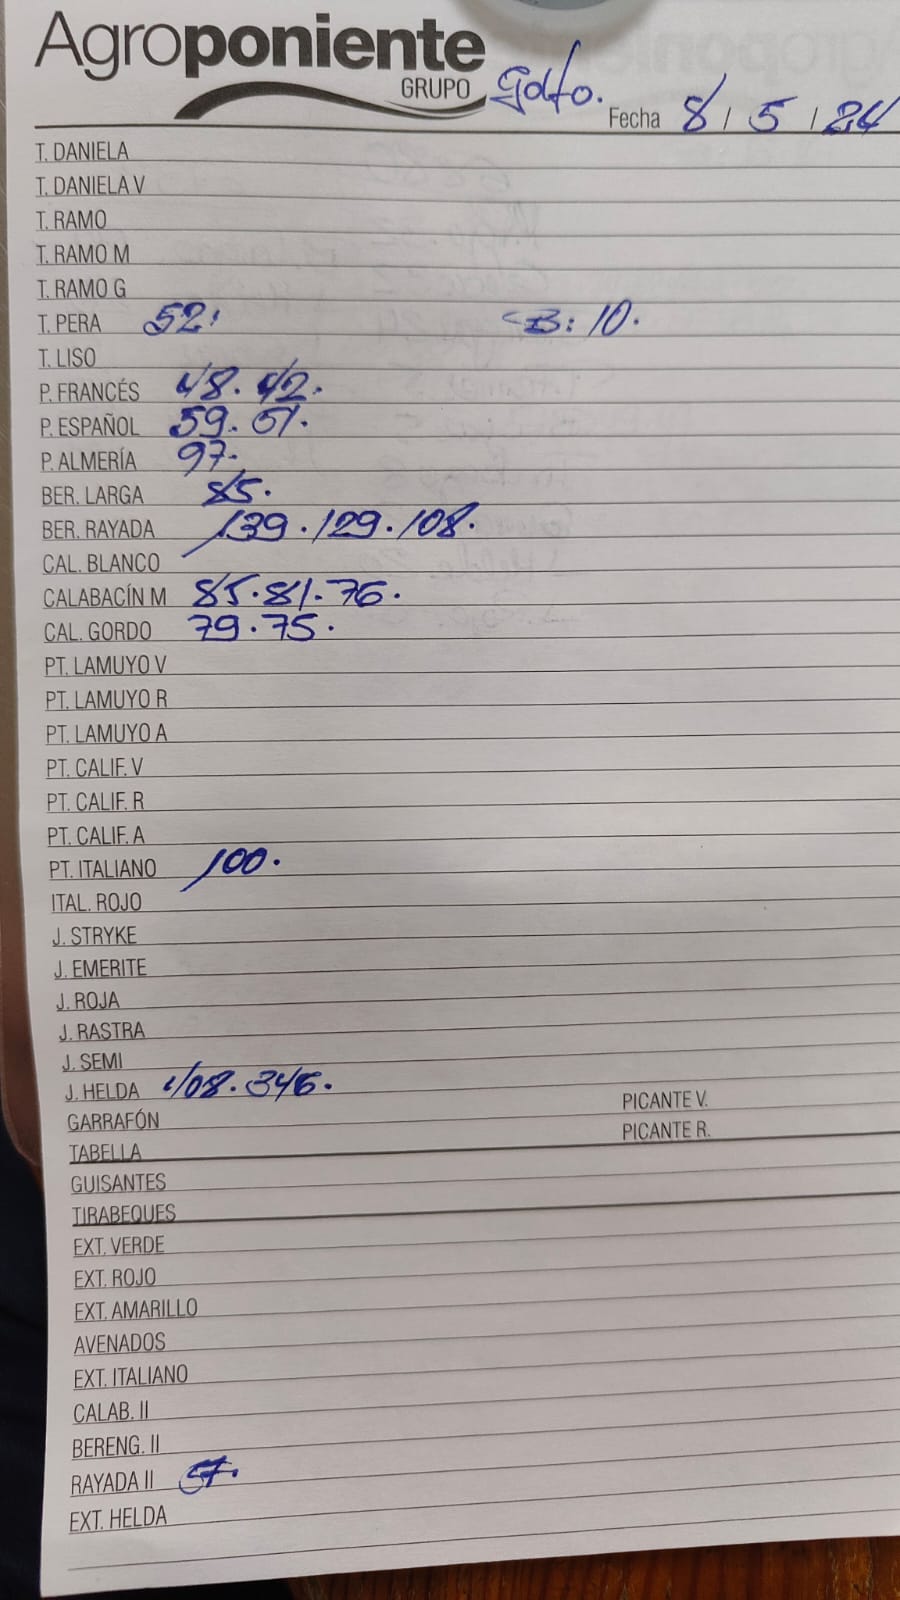 Agroponiente
GRUPO
Gdfo. Fecha 8 / 5 / 24
T. DANIELA
T. DANIELA V
T. RAMO
T. RAMO M
T. RAMO G
T. PERA 52. B: 10.
T. LISO
P. FRANCÉS 48. 42.
P. ESPAÑOL 59. 51.
P. ALMERÍA 97.
BER. LARGA 85.
BER. RAYADA 139. 129. 108.
CAL. BLANCO
CALABACÍN M 85. 81. 76.
CAL. GORDO 79. 75.
PT. LAMUYO V
PT. LAMUYO R
PT. LAMUYO A
PT. CALIF. V
PT. CALIF. R
PT. CALIF. A
PT. ITALIANO 100.
ITAL. ROJO
J. STRYKE
J. EMERITE
J. ROJA
J. RASTRA
J. SEMI
J. HELDA 408. 346.
GARRAFÓN PICANTE V.
TABELLA PICANTE R.
GUISANTES
TIRABEQUES
EXT. VERDE
EXT. ROJO
EXT. AMARILLO
AVENADOS
EXT. ITALIANO
CALAB. II
BERENG. II
RAYADA II 57.
EXT. HELDA